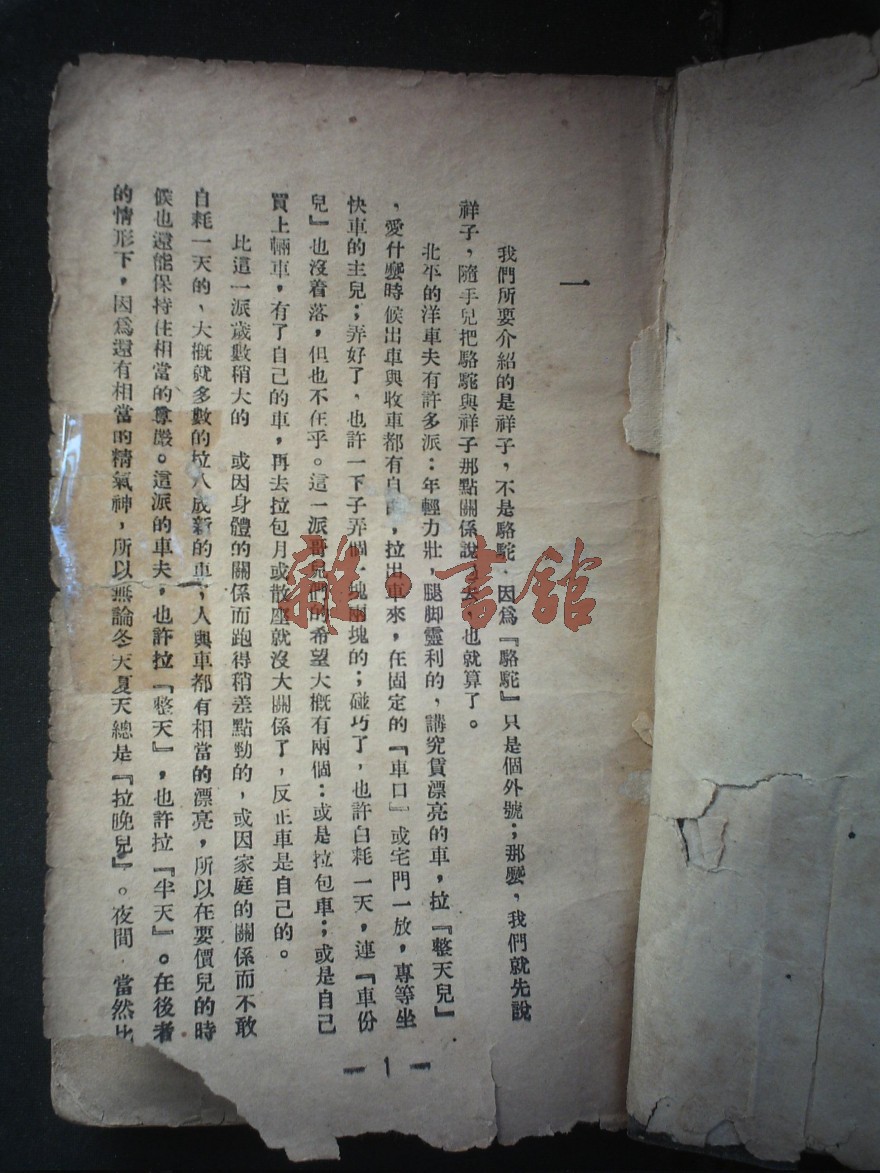 一
我們所要介紹的是祥子，不是駱駝，因爲『駱駝』只是個外號；那麼，我們就先說
祥子，隨手兒把駱駝與祥子那點關係說過去，也就算了。
北平的洋車夫有許多派：年輕力壯，腿脚靈利的，講究賃漂亮的車，拉『整天兒』
，愛什麼時候出車與收車都有自由，拉出車來，在固定的『車口』或宅門一放，專等坐
快車的主兒；弄好了，也許一下子弄個一塊兩塊的；碰巧了，也許白耗一天，連『車份
兒』也沒着落，但也不在乎。這一派哥兒們的希望大概有兩個：或是拉包車；或是自己
買上輛車，有了自己的車，再去拉包月或散座就沒大關係了，反正車是自己的。
比這一派歲數稍大的 或因身體的關係而跑得稍差點勁的，或因家庭的關係而不敢
自耗一天的、大概就多數的拉八成新的車；人與車都有相當的漂亮，所以在要價兒的時
候也還能保持住相當的尊嚴。這派的車夫，也許拉『整天』，也許拉『半天』。在後者
的情形下，因爲還有相當的精氣神，所以無論冬天夏天總是『拉晚兒』。夜間 當然比
— 1 —
雜·書館